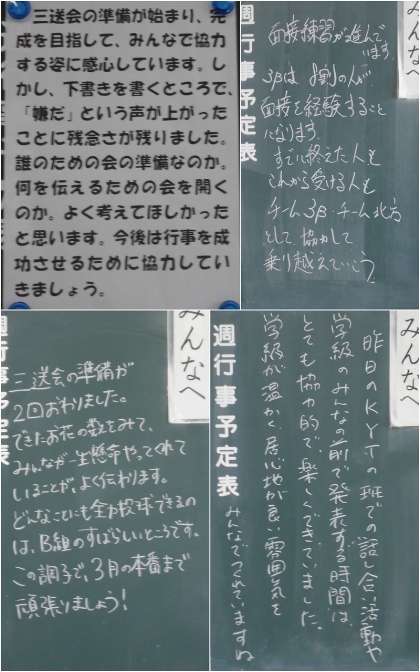 三送会の準備が始まり、完
成を目指して、みんなで協力
する姿に感心しています。し
かし、下書きを書くところで、
「嫌だ」という声が上がった
ことに残念さが残りました。
誰のための会の準備なのか。
何を伝えるための会を開く
のか。よく考えてほしかった
と思います。今後は行事を成
功させるために協力してい
きましょう。
みんな
週行事予定表
面接練習が進んで
います
3Bは 8割の人が
面接を経験すること
になります。
すでに終えた人も
これから受ける人も
チーム3B・チーム北方
として 協力して
乗り越えていこう
みんなへ
週行事予定表
三送会の準備が
2回おわりました。
できたお花の数をみて、
みんなが一生懸命やってくれて
いることが、よく伝わります。
どんなことにも全力投球できるの
は、B組のすばらしいところです。
この調子で、3月の本番まで
頑張りましょう!
みんなへ
週行事予定表
昨日のKYTの班での話し合い活動や
学級のみんなの前で発表する時間は、
とても協力的で、楽しくできていました。
学級が温かく、居心地が良い雰囲気を
みんなでつくれていますね